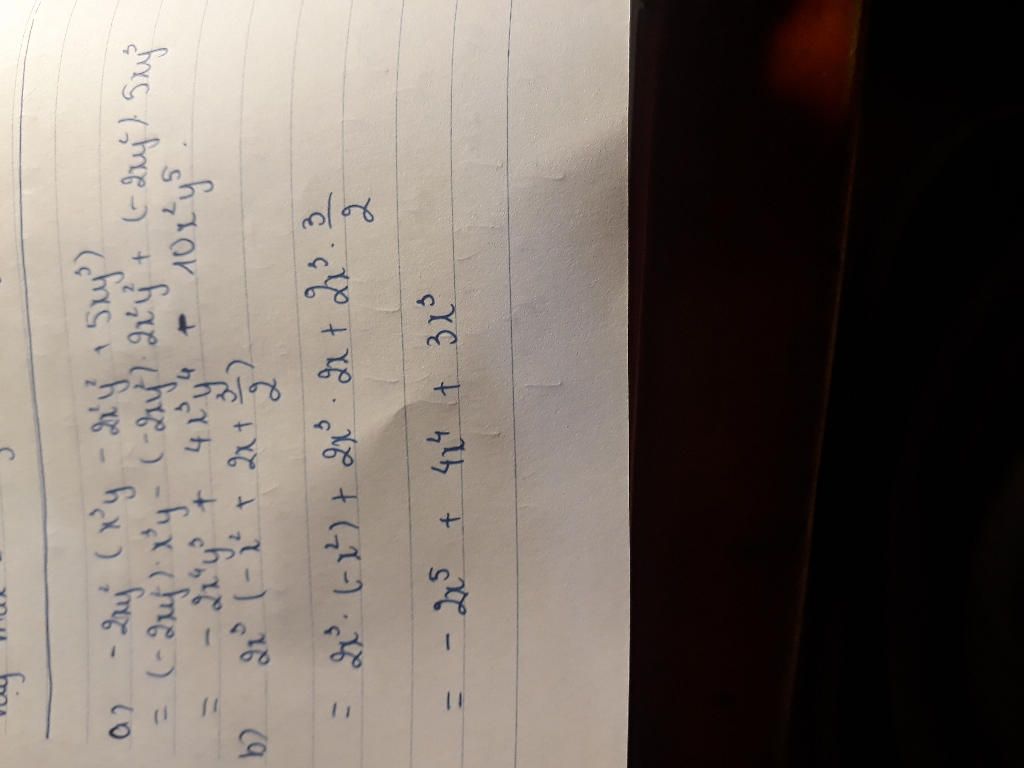 a) -2xy² (x³y - 2x²y² + 5xy³)
= (-2xy²).x³y - (-2xy²).2x²y² + (-2xy²).5xy³
= -2x⁴y³ + 4x³y⁴ + 10x²y⁵.
b) 2x³ (-x² + 2x + 3/2)
= 2x³.(-x²) + 2x³.2x + 2x³.3/2
= -2x⁵ + 4x⁴ + 3x³